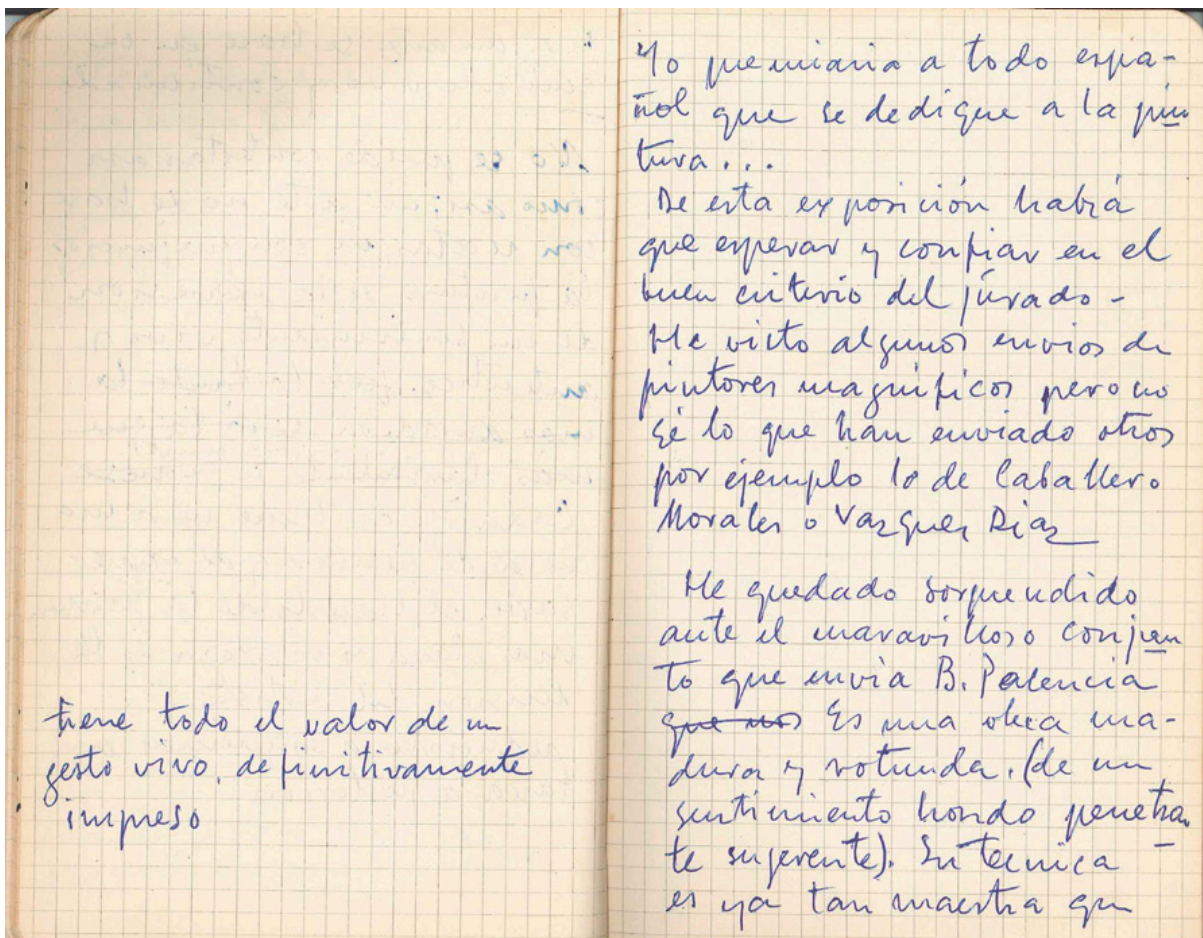 tiene todo el valor de un
gesto vivo, definitivamente
impreso
Yo premiaria a todo espa-
ñol que se dedique a la pin
tura...
De esta exposición habrá
que esperar y confiar en el
buen criterio del júrado -
He visto algunos envios de
pintores magnificos pero no
sé lo que han enviado otros
por ejemplo lo de Caballero
Morales o Vazquez Diaz
He quedado sorprendido
ante el maravilloso conjun
to que envia B. Palencia
que nos Es una obra ma-
dura y rotunda. (de un
sentimiento hondo penetran
te sugerente). Su tecnica
es ya tan maestra que